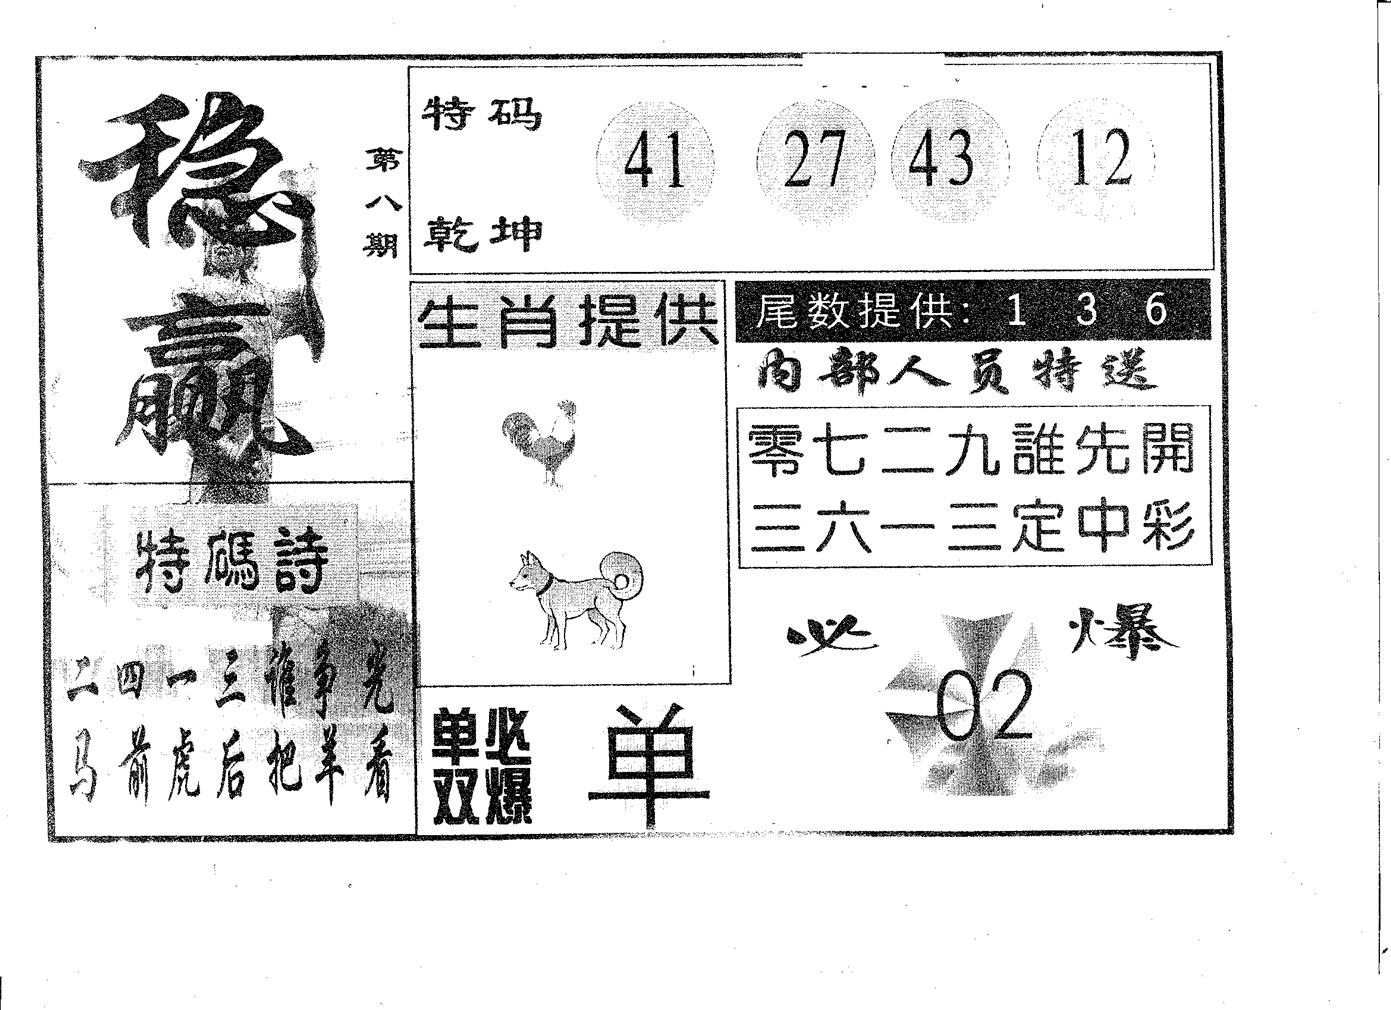 稳赢
第八期
特码
乾坤
41 27 43 12
生肖提供
尾数提供：1 3 6
内部人员特送
零七二九誰先開
三六一三定中彩
特碼詩
二四一三谁争光
马前虎后把羊看
单双
必爆
单
必爆
02